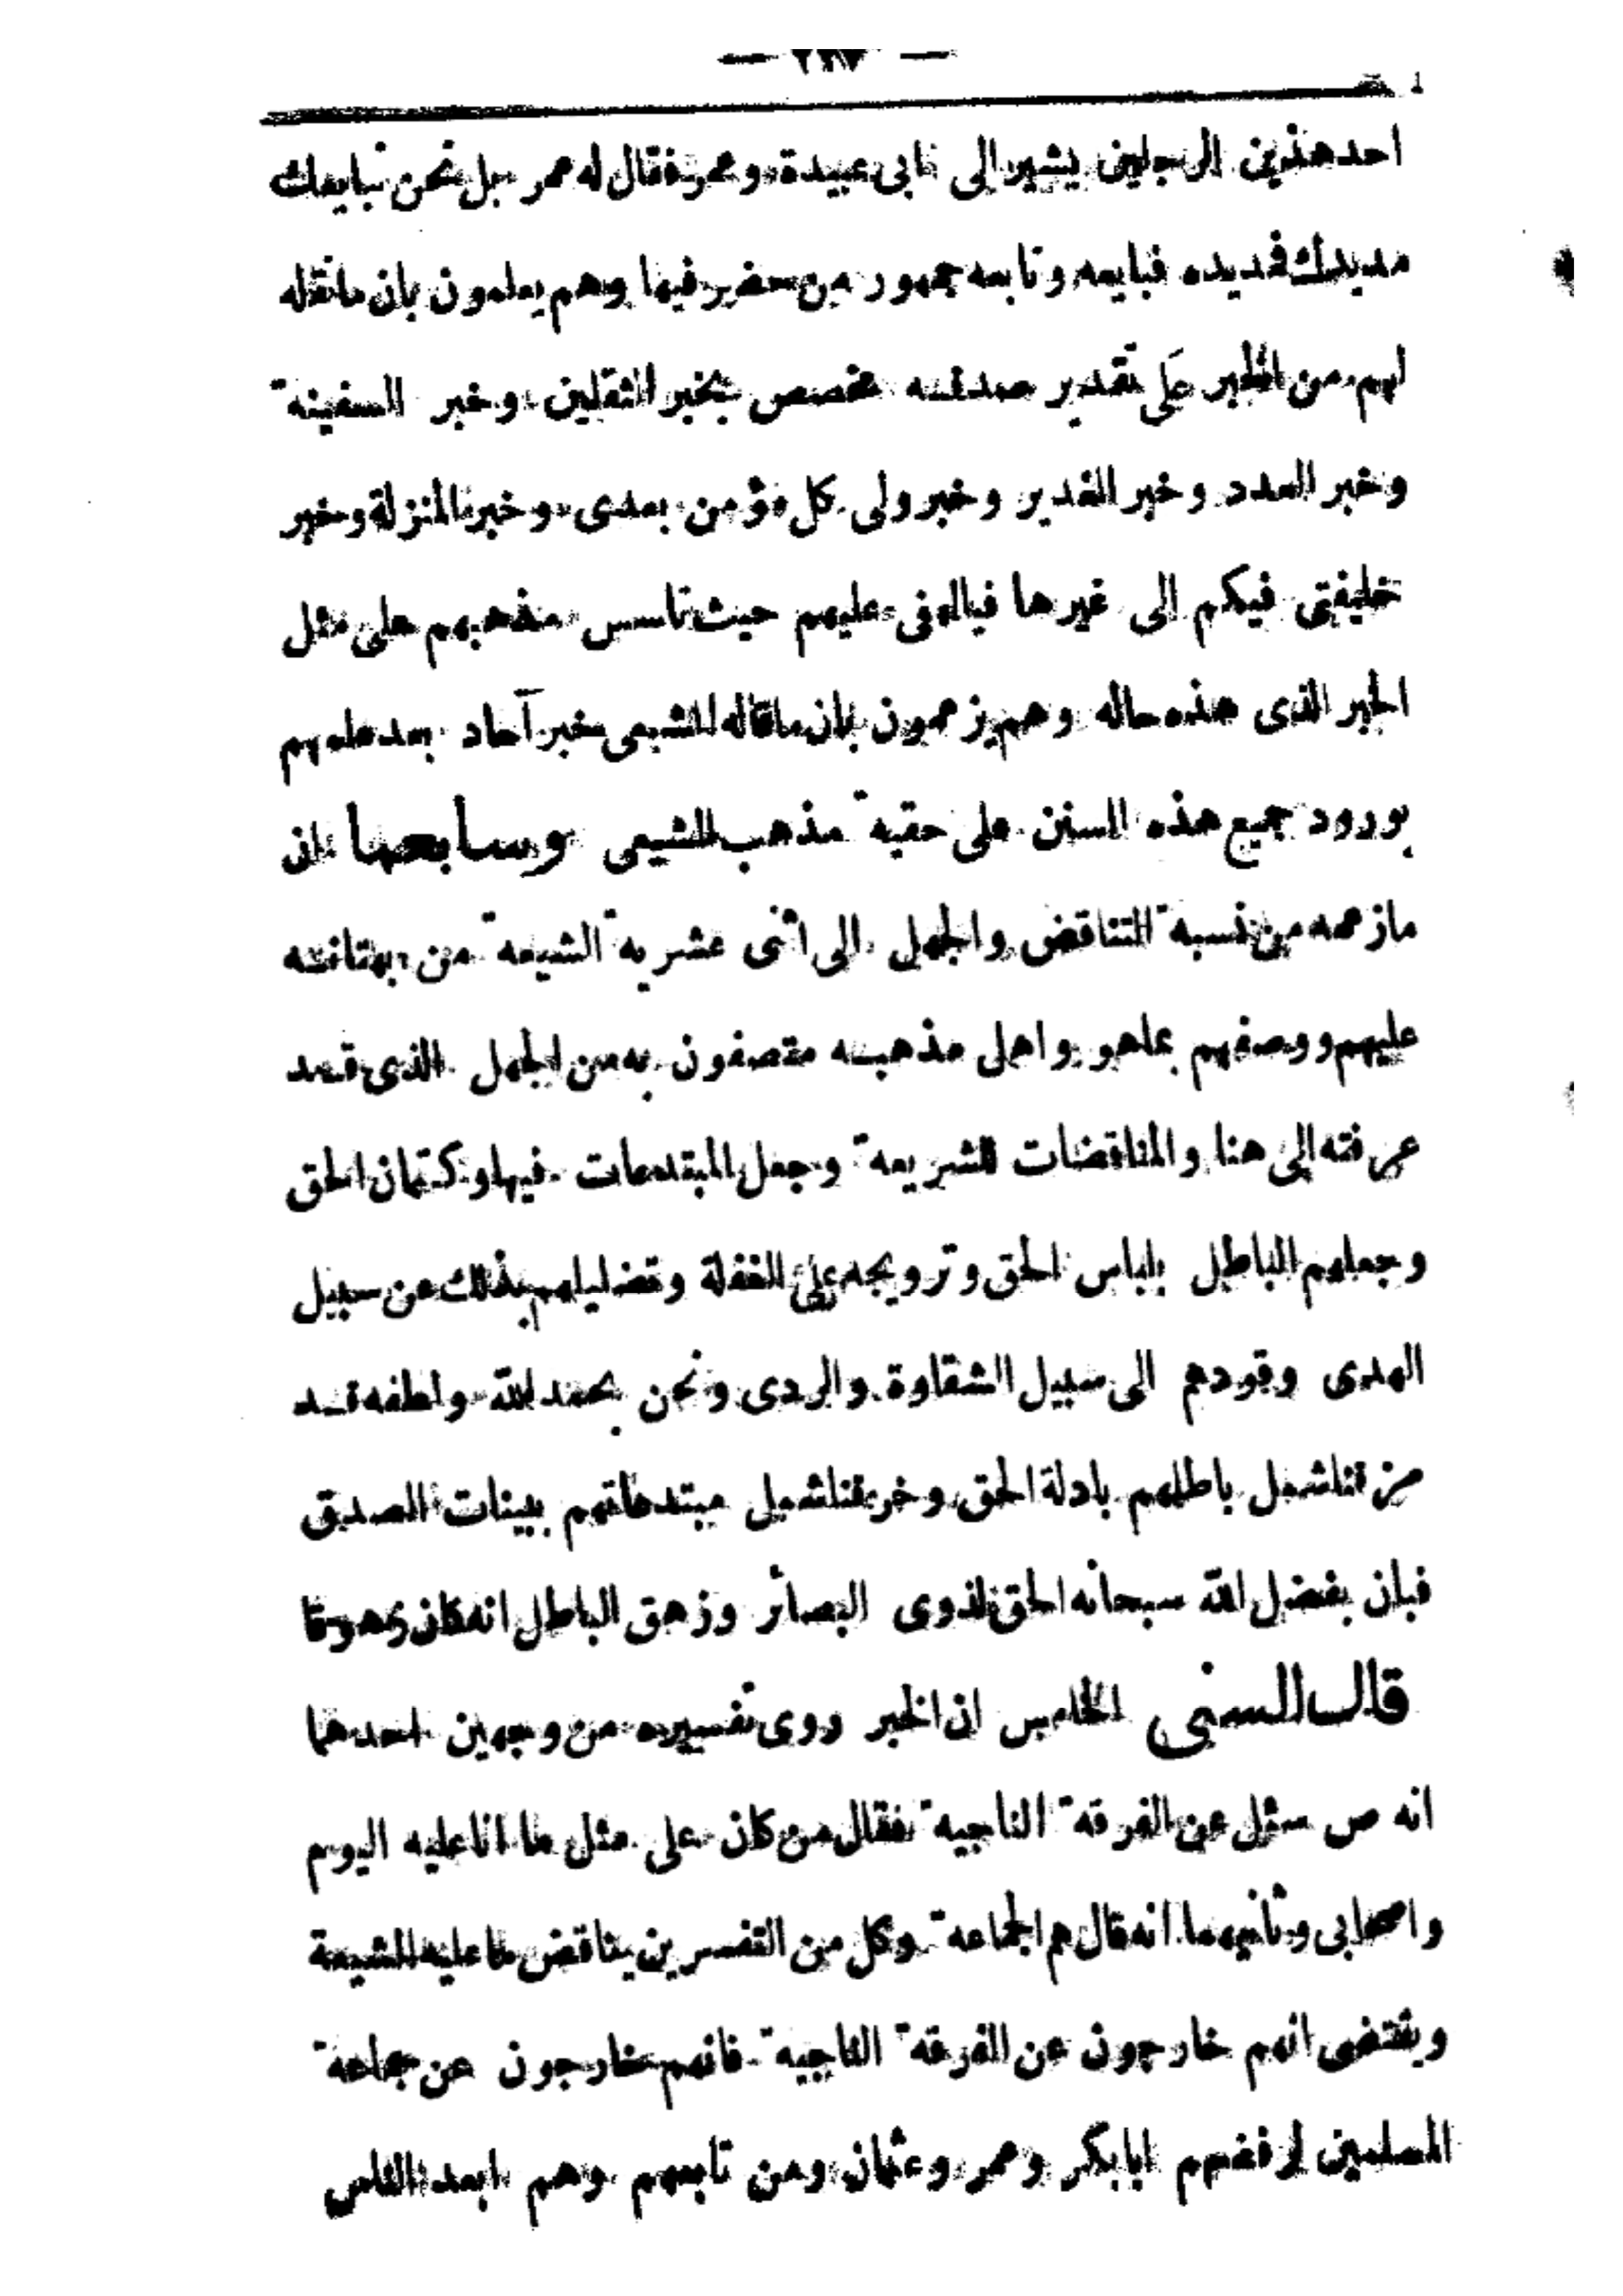 احد هذين الرجلين يشير الى ابى عبيدة وعمر فقال له عمر بل نحن نبايعك
مد يدك فمد يده فبايعه وتابعه جمهور من حضر فيها وهم يعلمون بان ما نقله
لهم من الخبر على تقدير صدقه مخصص بخبر الثقلين وخبر السفينة
وخبر العدد وخبر الغدير وخبر ولى كل مؤمن بعدى وخبر المنزلة وخبر
خليفتى فيكم الى غيرها فيالهفى عليهم حيث تاسس مذهبهم على مثل
الخبر الذى هذه حاله وهم يزعمون بان ما قاله الشيعى خبر آحاد بعد علمهم
بورود جميع هذه السنن على حقية مذهب الشيعى وسابعها ان
ما زعمه من نسبة التناقض والجهل الى اثنى عشرية الشيعة من بهتانه
عليهم ووصفهم بما هو واهل مذهبه متصفون به من الجهل الذى قد
عرفته الى هنا والمناقضات للشريعة وجعل المبتدعات فيها وكتمان الحق
وجعلهم الباطل بلباس الحق وترويجه على الغفلة وتضليلهم بذلك عن سبيل
الهدى وقودهم الى سبيل الشقاوة والردى ونحن بحمد الله ولطفه قد
مزقنا شمل باطلهم بادلة الحق وخرقنا شمل مبتدعاتهم ببينات الصدق
فبان بفضل الله سبحانه الحق لذوى البصائر وزهق الباطل انه كان زهوقا
قال السنى الخامس ان الخبر روى تفسيره من وجهين احدهما
انه ص سئل عن الفرقة الناجية فقال من كان على مثل ما انا عليه اليوم
واصحابى وثانيهما انه قال هم الجماعة وكل من التفسرين يناقض ما عليه الشيعة
ويقتضى انهم خارجون عن الفرقة الناجية فانهم خارجون عن جماعة
المسلمين لرفضهم ابابكر وعمر وعثمان ومن تابعهم وهم ابعد الناس